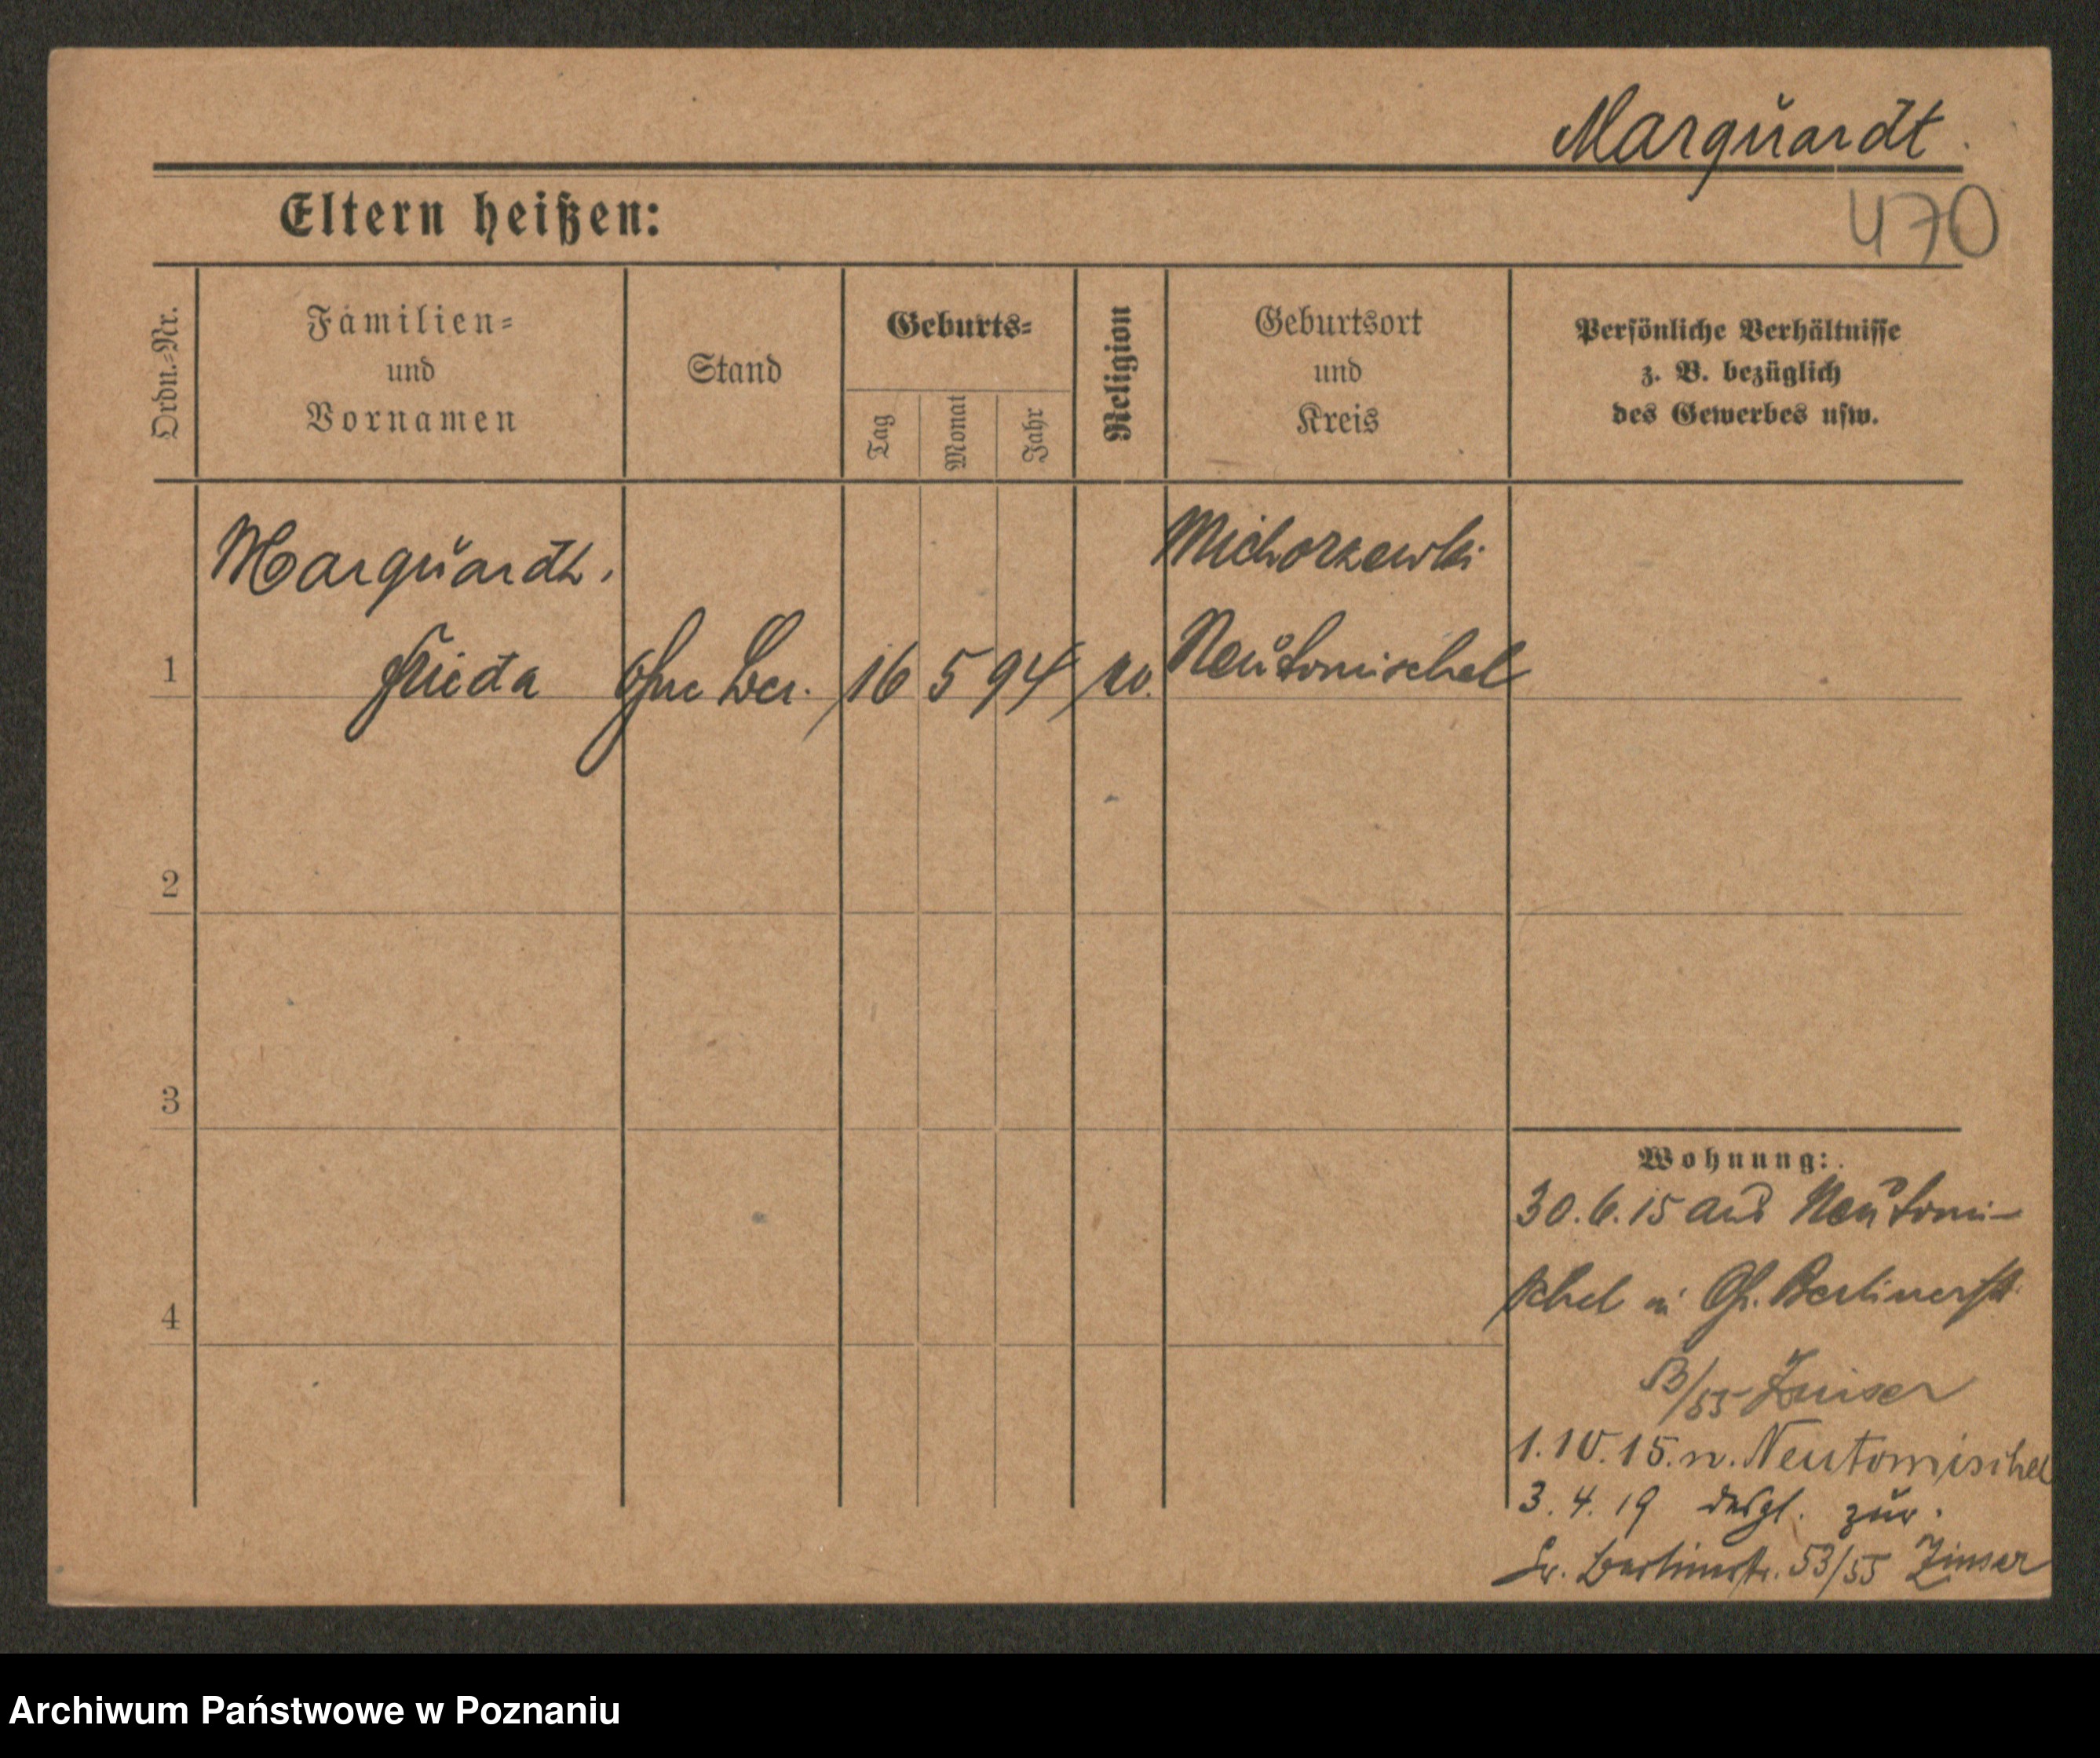 Marquardt.
470
Eltern heißen:
Ordn.-Nr.
Familien-
und
Vornamen
Stand
Geburts-
Tag
Monat
Jahr
Religion
Geburtsort
und
Kreis
Persönliche Verhältnisse
z. B. bezüglich
des Gewerbes usw.
Marquardt.
Michorzewski
1
Frieda
ohne Ber.
16
5
94
Neutomischel
2
3
4
Wohnung:
30.6.15 aus Neutomi-
schel in Gr. Berlinerstr.
53/55 Zinser
1.10.15. n. Neutomischel
3.4.19 desgl. zur.
Gr. Berlinerstr. 53/55 Zinser
Archiwum Państwowe w Poznaniu